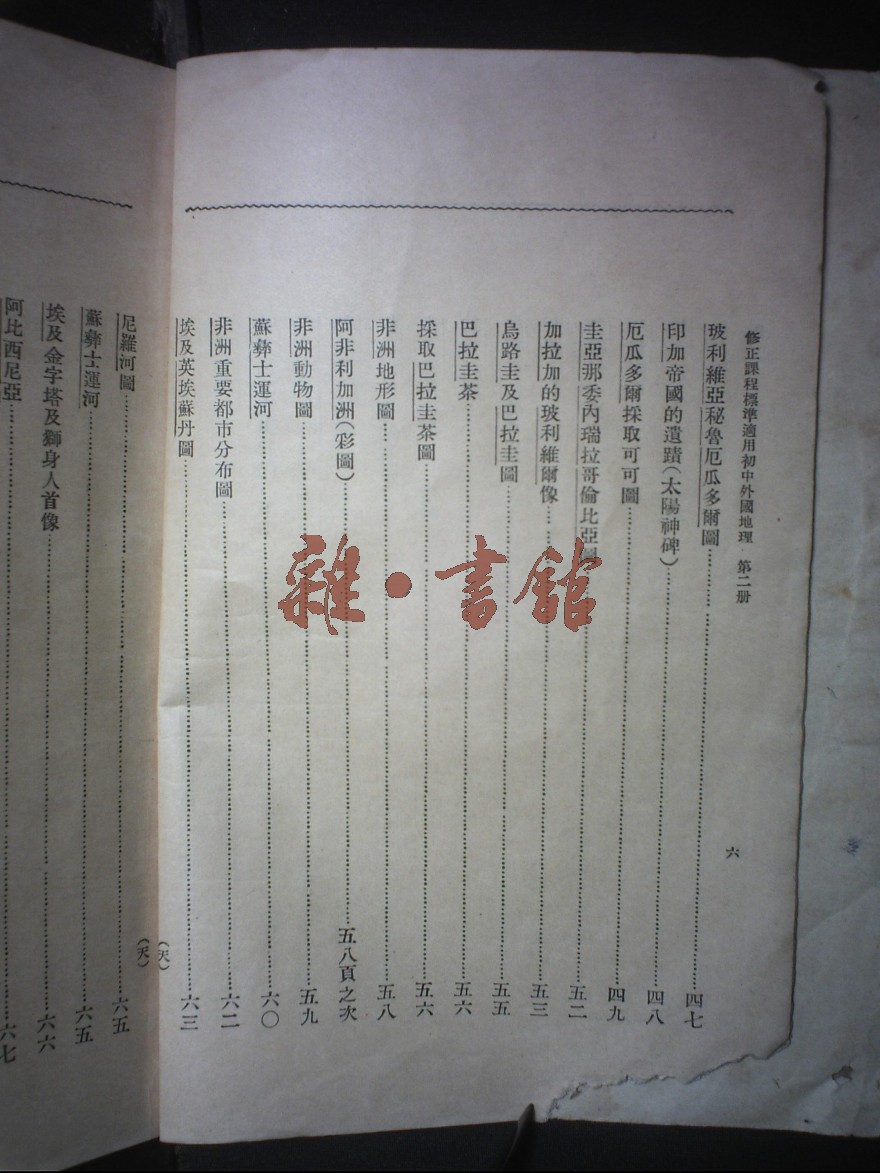 修正課程標準適用初中外國地理　第二册
六
玻利維亞秘魯厄瓜多爾圖……四七
印加帝國的遺蹟(太陽神碑)……四八
厄瓜多爾採取可可圖……四九
圭亞那委內瑞拉哥倫比亞圖……五二
加拉加的玻利維爾像……五三
烏路圭及巴拉圭圖……五五
巴拉圭茶……五六
採取巴拉圭茶圖……五六
非洲地形圖……五八
阿非利加洲(彩圖)……五八頁之次
非洲動物圖……五九
蘇彝士運河……六〇
非洲重要都市分布圖……六二
埃及英埃蘇丹圖……六三
(天)
(天)
尼羅河圖……六五
蘇彝士運河……六五
埃及金字塔及獅身人首像……六六
阿比西尼亞……六七
雜·書館